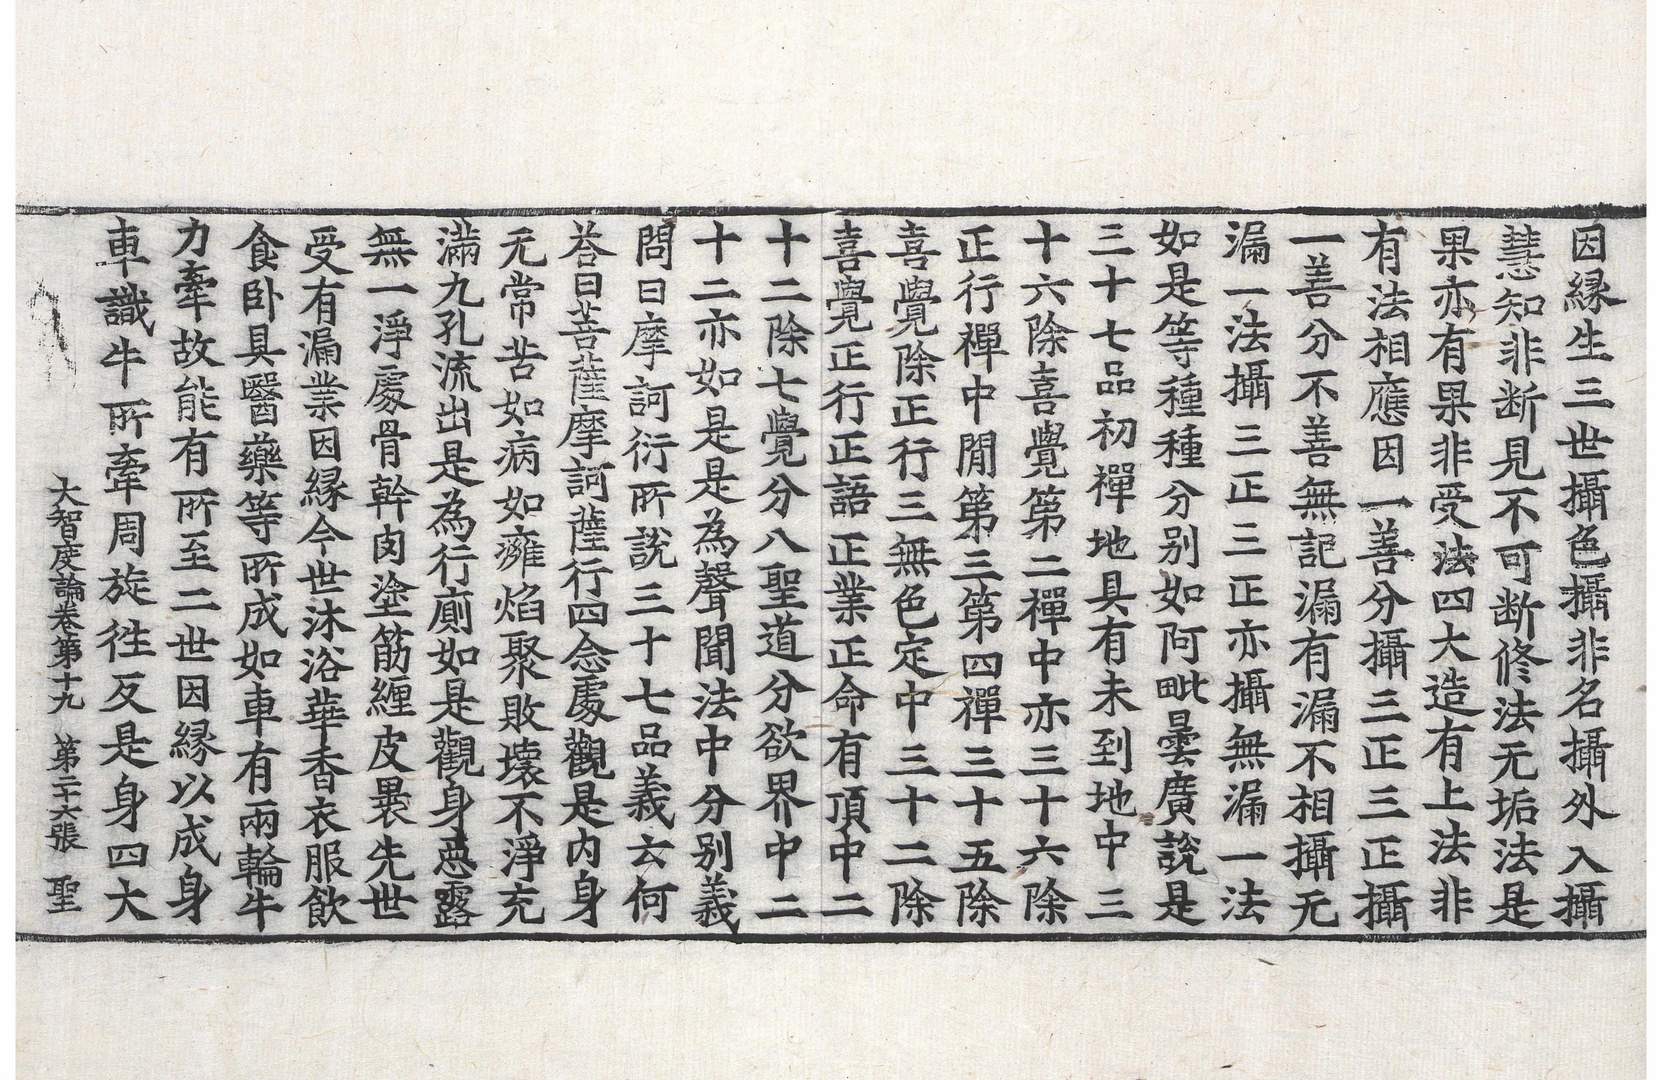 因縁生三世攝色攝非名攝外入攝
慧知非断見不可断修法无垢法是
果亦有果非受法四大造有上法非
有法相應因一善分攝三正三正攝
一善分不善無記漏有漏不相攝无
漏一法攝三正三正亦攝無漏一法
如是等種種分別如阿毗曇廣說是
三十七品初禪地具有未到地中三
十六除喜覺第二禪中亦三十六除
正行禪中閒第三第四禪三十五除
喜覺除正行三無色定中三十二除
喜覺正行正語正業正命有頂中二
十二除七覺分八聖道分欲界中二
十二亦如是是為聲聞法中分別義
問曰摩訶衍所說三十七品義云何
荅曰菩薩摩訶薩行四念處觀是內身
无常苦如病如癰焰聚敗壞不淨充
滿九孔流出是為行廁如是觀身惡露
無一淨處骨幹肉塗筋纏皮褁先世
受有漏業因縁今世沐浴華香衣服飲
食卧具醫藥等所成如車有兩輪牛
力牽故能有所至二世因縁以成身
車識牛所牽周旋往反是身四大
大智度論卷第十九 第二十六張 聖